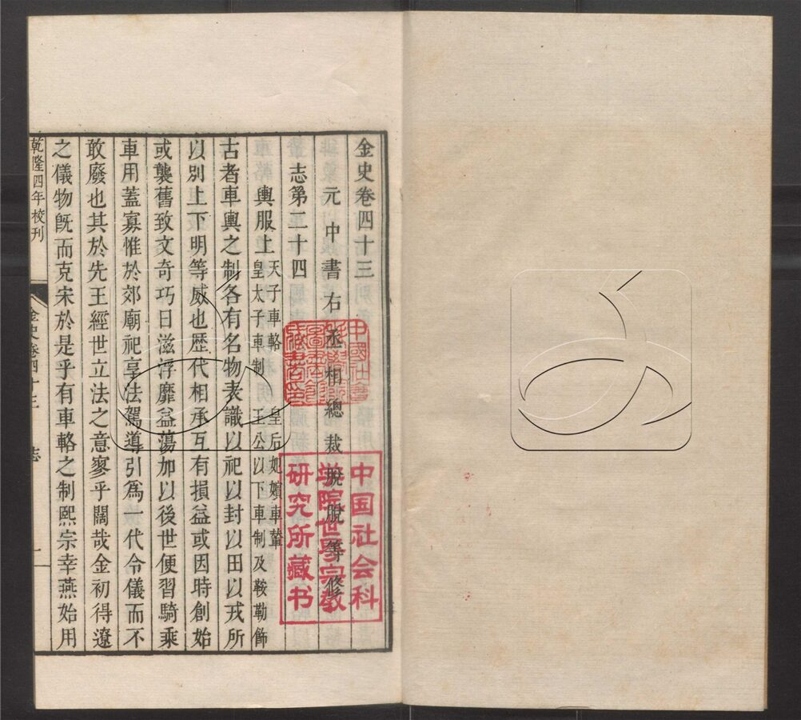 金史卷四十三
元中書右丞相總裁脫脫等修
志第二十四
輿服上
天子車輅
皇后妃嬪車輦
皇太子車制
王公以下車制及鞍勒飾
古者車輿之制各有名物表識以祀以封以田以戎所
以別上下明等威也歷代相承互有損益或因時創始
或襲舊致文奇巧日滋浮靡益蕩加以後世便習騎乘
車用蓋寡惟於郊廟祀享法駕導引爲一代令儀而不
敢廢也其於先王經世立法之意寥乎闊哉金初得遼
之儀物旣而克宋於是乎有車輅之制熙宗幸燕始用
乾隆四年校刊
金史卷四十三
志
一
中国社会科
学院世界宗教
研究所藏书